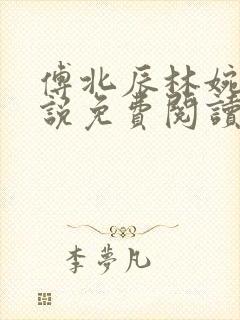 傅北辰林婉
説免費閱讀
李夢凡